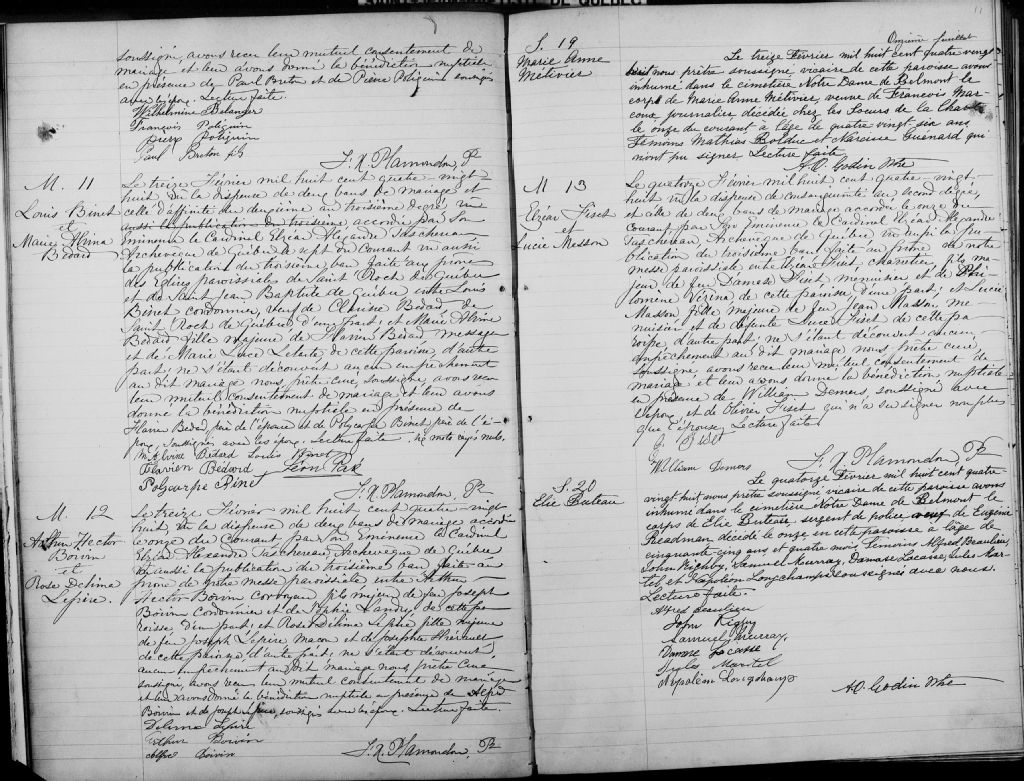 soussigné, avons reçu leur mutuel consentement de
mariage et leur avons donné la bénédiction nuptiale
en présence de Paul Breton et de Pierre Poliquin soussignés
avec l'époux. Lecture faite.
Wilhelmine Bélanger
François Poliquin
Pierre Poliquin
Paul Breton fils
F. X. Plamondon, Pr
M. 11
Louis Binet
et
Marie
Bédard
Le treize Février mil huit cent quatre-vingt
huit vu la dispense de deux bans de mariage et
celle d'affinité du deuxième au troisième degré vu
aussi la publication du troisième accordée par Son
Eminence le Cardinal Elzéar Alexandre Taschereau
Archevêque de Québec le sept du Courant vu aussi
la publication du troisième ban faite aux prônes
des Eglises paroissiales de Saint Roch de Québec
et de Saint Jean Baptiste de Québec entre Louis
Binet cordonnier, veuf de Bédard de
Saint Roch de Québec, d'une part; et Marie
Bédard fille majeure de Flavien Bédard messager
et de Marie Luce Letarte de cette paroisse, d'autre
part; ne s'étant découvert aucun empêchement
au dit mariage nous, prêtre curé, soussigné, avons reçu
leur mutuel consentement de mariage et leur avons
donné la bénédiction nuptiale en présence de
Flavien Bédard, père de l'épouse et de Polycarpe Binet, père de l'é-
poux, soussignés avec les époux. Lecture faite. mots rayés nuls.
Bédard Louis Binet
Flavien Bédard Léon Paré
Polycarpe Binet
F. X. Plamondon, Pr
M. 12
Arthur Hector
Boivin
et
Rose Délima
Lépire.
Le treize Février mil huit cent quatre-vingt
huit vu la dispense de deux bans de mariage accordée
le onze du courant par Son Eminence le Cardinal
Elzéar Alexandre Taschereau Archevêque de Québec
vu aussi la publication du troisième ban faite au
prône de notre messe paroissiale entre Arthur
Hector Boivin corroyeur fils majeur de feu Joseph
Boivin Cordonnier et de Sophie Landry de cette pa-
roisse, d'une part; et Rose Délima Lépire fille majeure
de feu Joseph Lépire maçon et de Josephte
de cette paroisse d'autre part; ne s'étant découvert
aucun empêchement au dit mariage nous, prêtre Curé
soussigné, avons reçu leur mutuel consentement de mariage
et leur avons donné la bénédiction nuptiale en présence de Alfred
Boivin et de Joseph Lépire, soussignés avec les époux. Lecture faite.
Délima Lépire
Arthur Boivin
Alfred Boivin
F. X. Plamondon, Pr
11
Onzième feuillet
S. 19
Marie Anne
Métivier
Le treize Février mil huit cent quatre vingt
huit nous prêtre soussigné vicaire de cette paroisse avons
inhumé dans le cimetière Notre Dame de Belmont le
corps de Marie Anne Métivier, veuve de François Mar-
coux journalier, décédée chez les Soeurs de la Charité
le onze du courant à l'âge de quatre vingt six ans
Témoins Mathias Bolduc et Narcisse Guenard qui
n'ont pu signer Lecture faite
A. O. Godin Ptre
M 13
Elzéar Fiset
et
Lucie Masson
Le quatorze Février mil huit cent quatre-vingt-
huit vu la dispense de consanguinité au second degré,
et celle de deux bans de mariage accordée le onze du
courant par Son Eminence le Cardinal Elzéar Alexandre
Taschereau, Archevêque de Québec vu aussi la pu-
blication du troisième ban faite au prône de notre
messe paroissiale entre Elzéar Fiset charretier, fils ma-
jeur de feu Damase Fiset, menuisier et de Phi-
lomène Vézina de cette paroisse, d'une part; et Lucie
Masson fille majeure de feu Jean Masson, me-
nuisier et de défunte Luce Fiset de cette pa-
roisse d'autre part; ne s'étant découvert aucun
empêchement au dit mariage nous prêtre curé,
soussigné, avons reçu leur mutuel consentement de
mariage et leur avons donné la bénédiction nuptiale
en présence de William Demers, soussigné avec
l'époux, et de Olivier Fiset qui n'a su signer non plus
que l'épouse. Lecture faite
Fiset
William Demers
F. X. Plamondon, Pr
S. 20
Elie Buteau
Le quatorze Février mil huit cent quatre
vingt huit nous prêtre soussigné vicaire de cette paroisse avons
inhumé dans le cimetière Notre Dame de Belmont le
corps de Elie Buteau sergent de police de Eugénie
Readman décédé le onze en cette paroisse à l'âge de
cinquante cinq ans et quatre mois Témoins Alfred Beaulieu,
John Rigby, Samuel Murray, Damase Lacasse, Jules Mar-
tel et Napoléon Longchamps soussignés avec nous.
Lecture faite.
Alfred Beaulieu
John Rigby
Samuel Murray,
Damase Lacasse
Jules Martel
Napoléon Longchamps
A. O. Godin Ptre